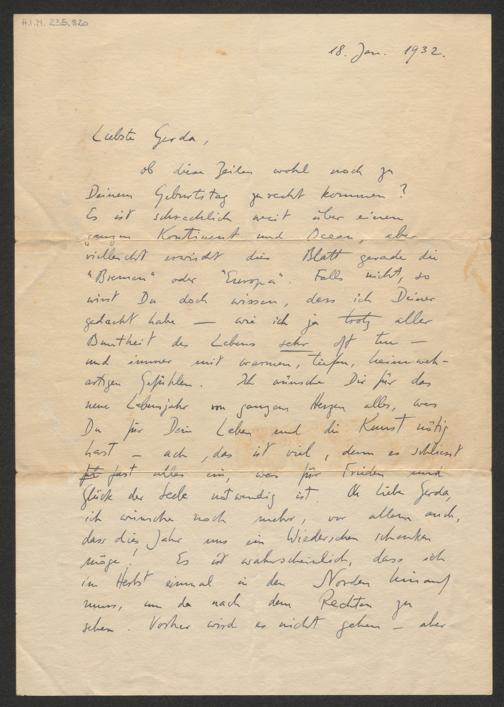 H.I.N. 235.820
18. Jan. 1932.
Liebste Gerda,
ob diese Zeilen wohl noch zu
Deinem Geburtstag zurecht kommen?
Es ist schrecklich weit über einen
ganzen Kontinent und Ocean, aber
vielleicht erwischt dies Blatt gerade die
"Bremen" oder "Europa". Falls nicht, so
wirst Du doch wissen, dass ich Deiner
gedacht habe — wie ich ja trotz aller
Buntheit des Lebens sehr oft tue —
und immer mit warmen, tiefen, heimweh-
artigen Gefühlen. Ich wünsche Dir für das
neue Lebensjahr von ganzem Herzen alles, was
Du für Dein Leben und die Kunst nötig
hast — ach, das ist viel, denn es schliesst
fast alles ein, was für Frieden und
Glück der Seele notwendig ist. Oh liebe Gerda,
ich wünsche noch mehr, vor allem auch,
dass dies Jahr uns ein Wiedersehen schenken
möge! Es ist wahrscheinlich, dass ich
im Herbst einmal in den Norden hinauf
muss, um da nach dem Rechten zu
sehen. Vorher wird es nicht gehen — aber